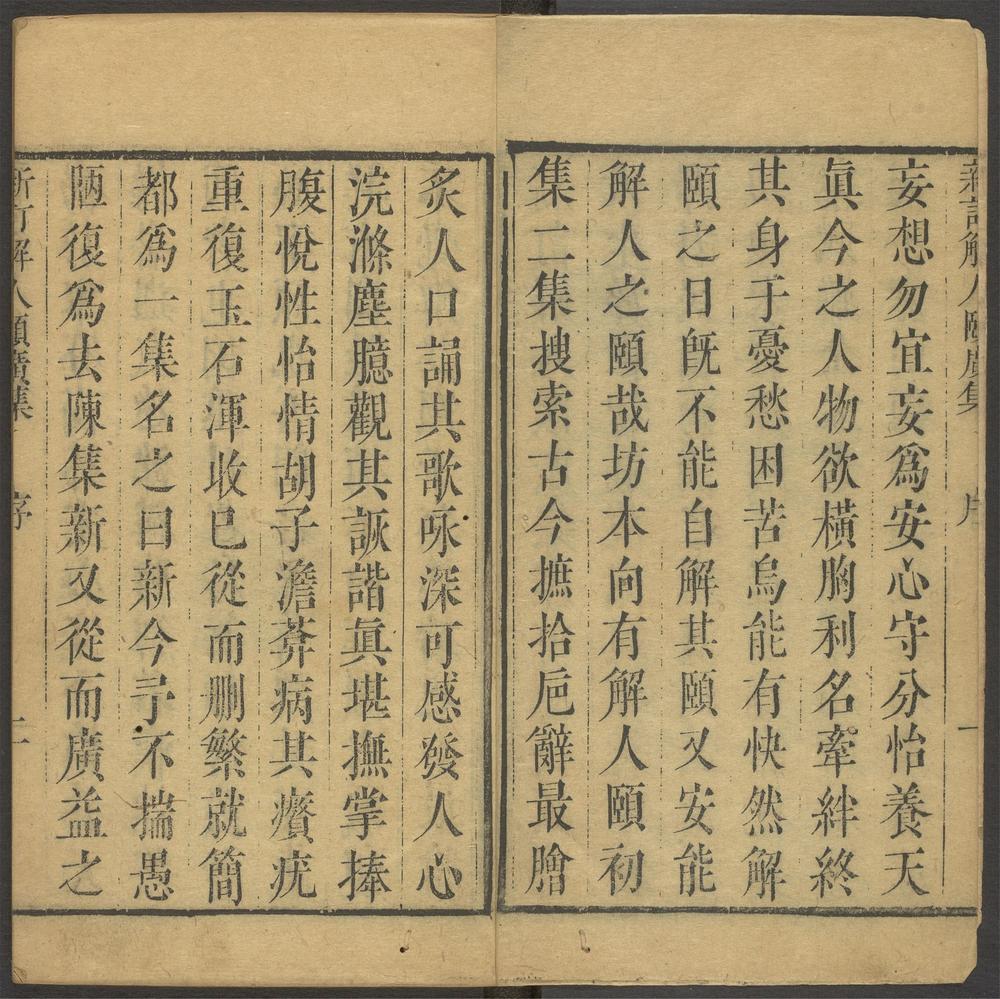 新訂解人頤廣集 序 一
妄想勿宜妄爲安心守分怡養天
眞今之人物欲橫胸利名牽絆終
其身于憂愁困苦烏能有快然解
頤之日旣不能自解其頤又安能
解人之頤哉坊本向有解人頤初
集二集搜索古今摭拾巵辭最膾
炙人口誦其歌咏深可感發人心
浣滌塵臆觀其詼諧眞堪撫掌捧
腹悅性怡情胡子澹菴病其瘠疣
重復玉石渾收已從而删繁就簡
都爲一集名之曰新今予不揣愚
陋復爲去陳集新又從而廣益之
新訂解人頤廣集 序 二